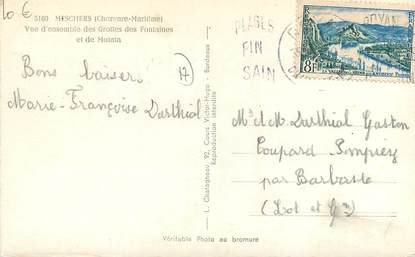 10 €
5160 MESCHERS (Charente-Maritime)
Vue d'ensemble des Grottes des Fontaines
et de Matata
Bons baisers
17
Marie-Françoise Darthial
L. Chatagneau, 92, Cours Victor-Hugo - Bordeaux
Reproduction interdite
PLAGES
FIN
SAIN
ROYAN
8F
Mr et M. Darthial Gaston
Coupard Pompiey
par Barbaste
(Lot et Gne)
Véritable Photo au bromure